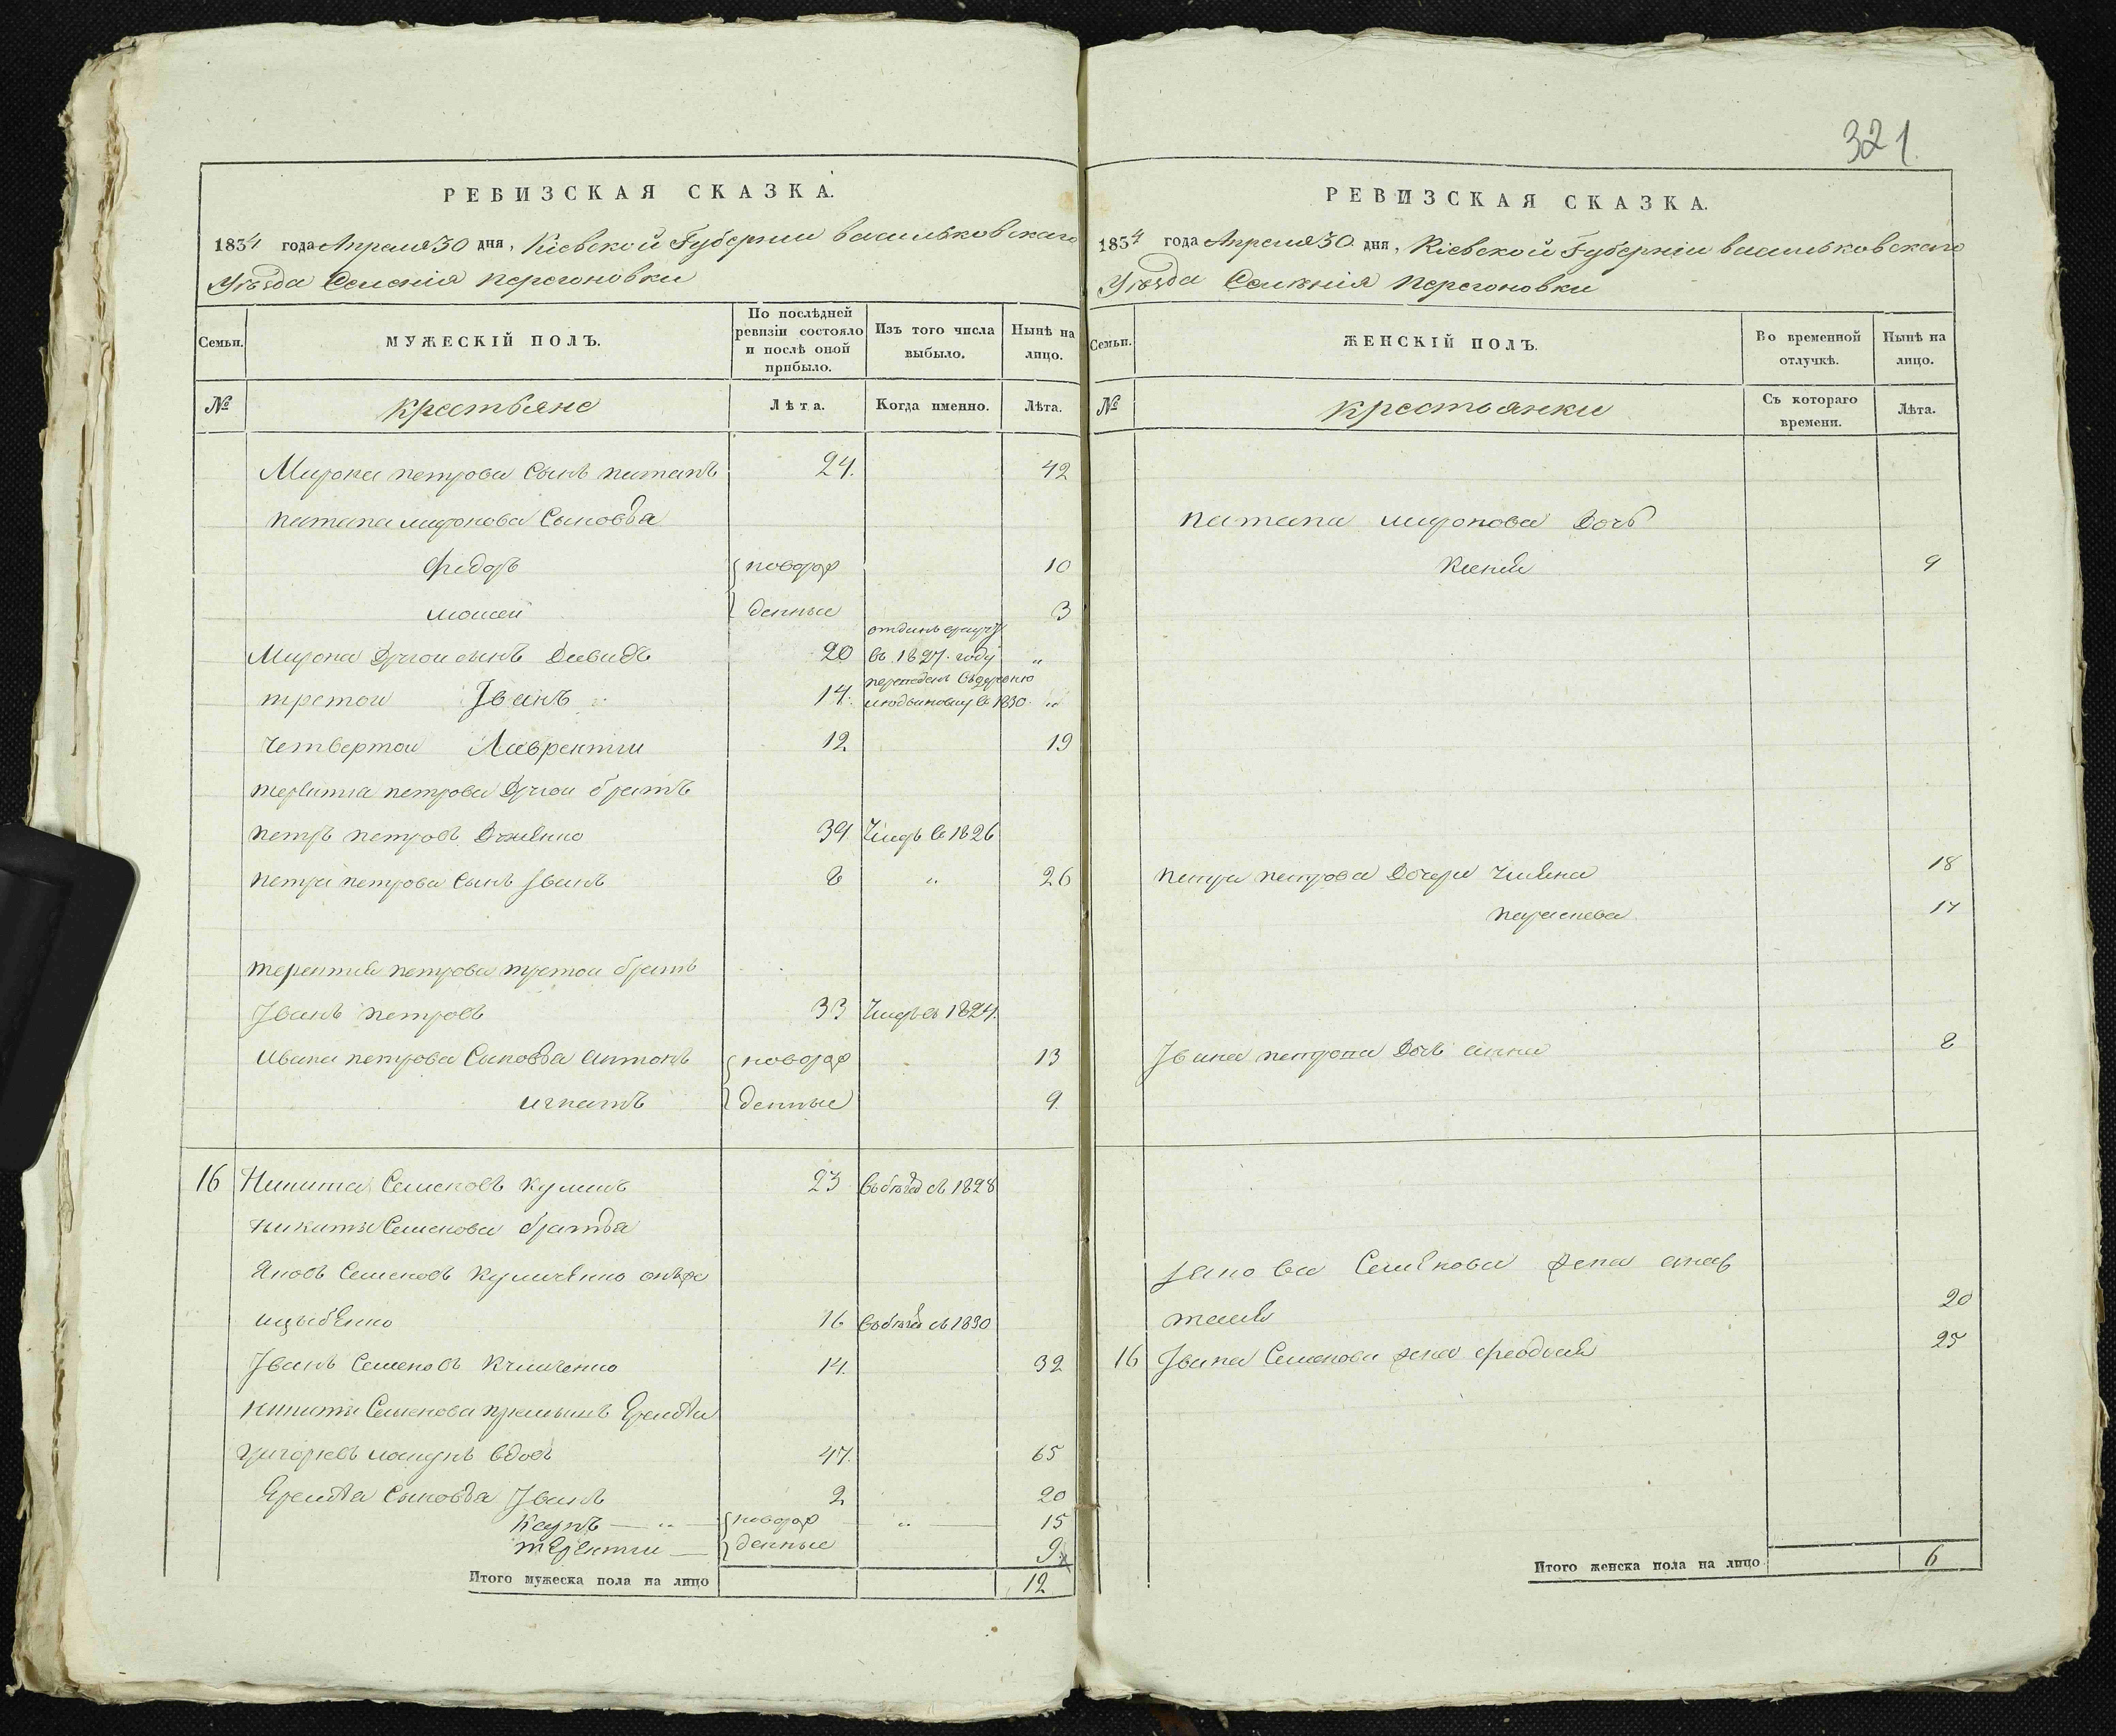 321
РЕВИЗСКАЯ СКАЗКА.
1834 года Апреля 30 дня, Кіевской Губерніи васильковскаго
Уѣзда Селенія перегоновки
Семьи.
МУЖЕСКІЙ ПОЛЪ.
По послѣдней ревизіи состояло и послѣ оной прибыло.
Изъ того числа выбыло.
Нынѣ на лицо.
№
крестьяне
Лѣта.
Когда именно.
Лѣта.
Мирона петрова Сынъ патапъ 24. 42
патапа миронова Сыновья
федоръ новорож 10
моисей денные 3
отданъ
Мирона Другои сынъ Давидъ 20 въ 1827. году "
третои Іванъ 14. в 1830 "
четвертои Лаврентии 12 19
петрова Другои братъ
петръ петровъ 39. Умеръ в 1826
петра петрова Сынъ Іванъ 8 " 26
терентия петрова третои братъ
Іванъ петровъ 33 Умеръ в 1824.
Ивана петрова Сыновья антонъ новорож 13
игнатъ денные 9.
16 Никита Семеновъ 23 въ бѣгах съ 1828
никиты Семенова братья
Яковъ Семеновъ онъ же
16 въ бѣгах съ 1830
Іванъ Семеновъ 14. 32
никиты Семенова Еремѣи
григорьевъ вдовъ 47. 65
Еремѣя Сыновья Іванъ 2 20
новорож " 15
терентии денные 9
Итого мужеска пола на лицо 12
РЕВИЗСКАЯ СКАЗКА.
1834 года Апреля 30 дня, Кіевской Губерніи васильковскаго
Уѣзда Селенія перегоновки
Семьи.
ЖЕНСКІЙ ПОЛЪ.
Во временной отлучкѣ.
Нынѣ на лицо.
№
крестьянки
Съ котораго времени.
Лѣта.
патапа миронова дочь
Ксения 9
петра петрова Дочери 18
параскева 17
Івана петрова Дочь анна 8
Якова Семенова жена анас
тасия 20
16 Івана Семенова жена феодосия 25
Итого женска пола на лицо 6